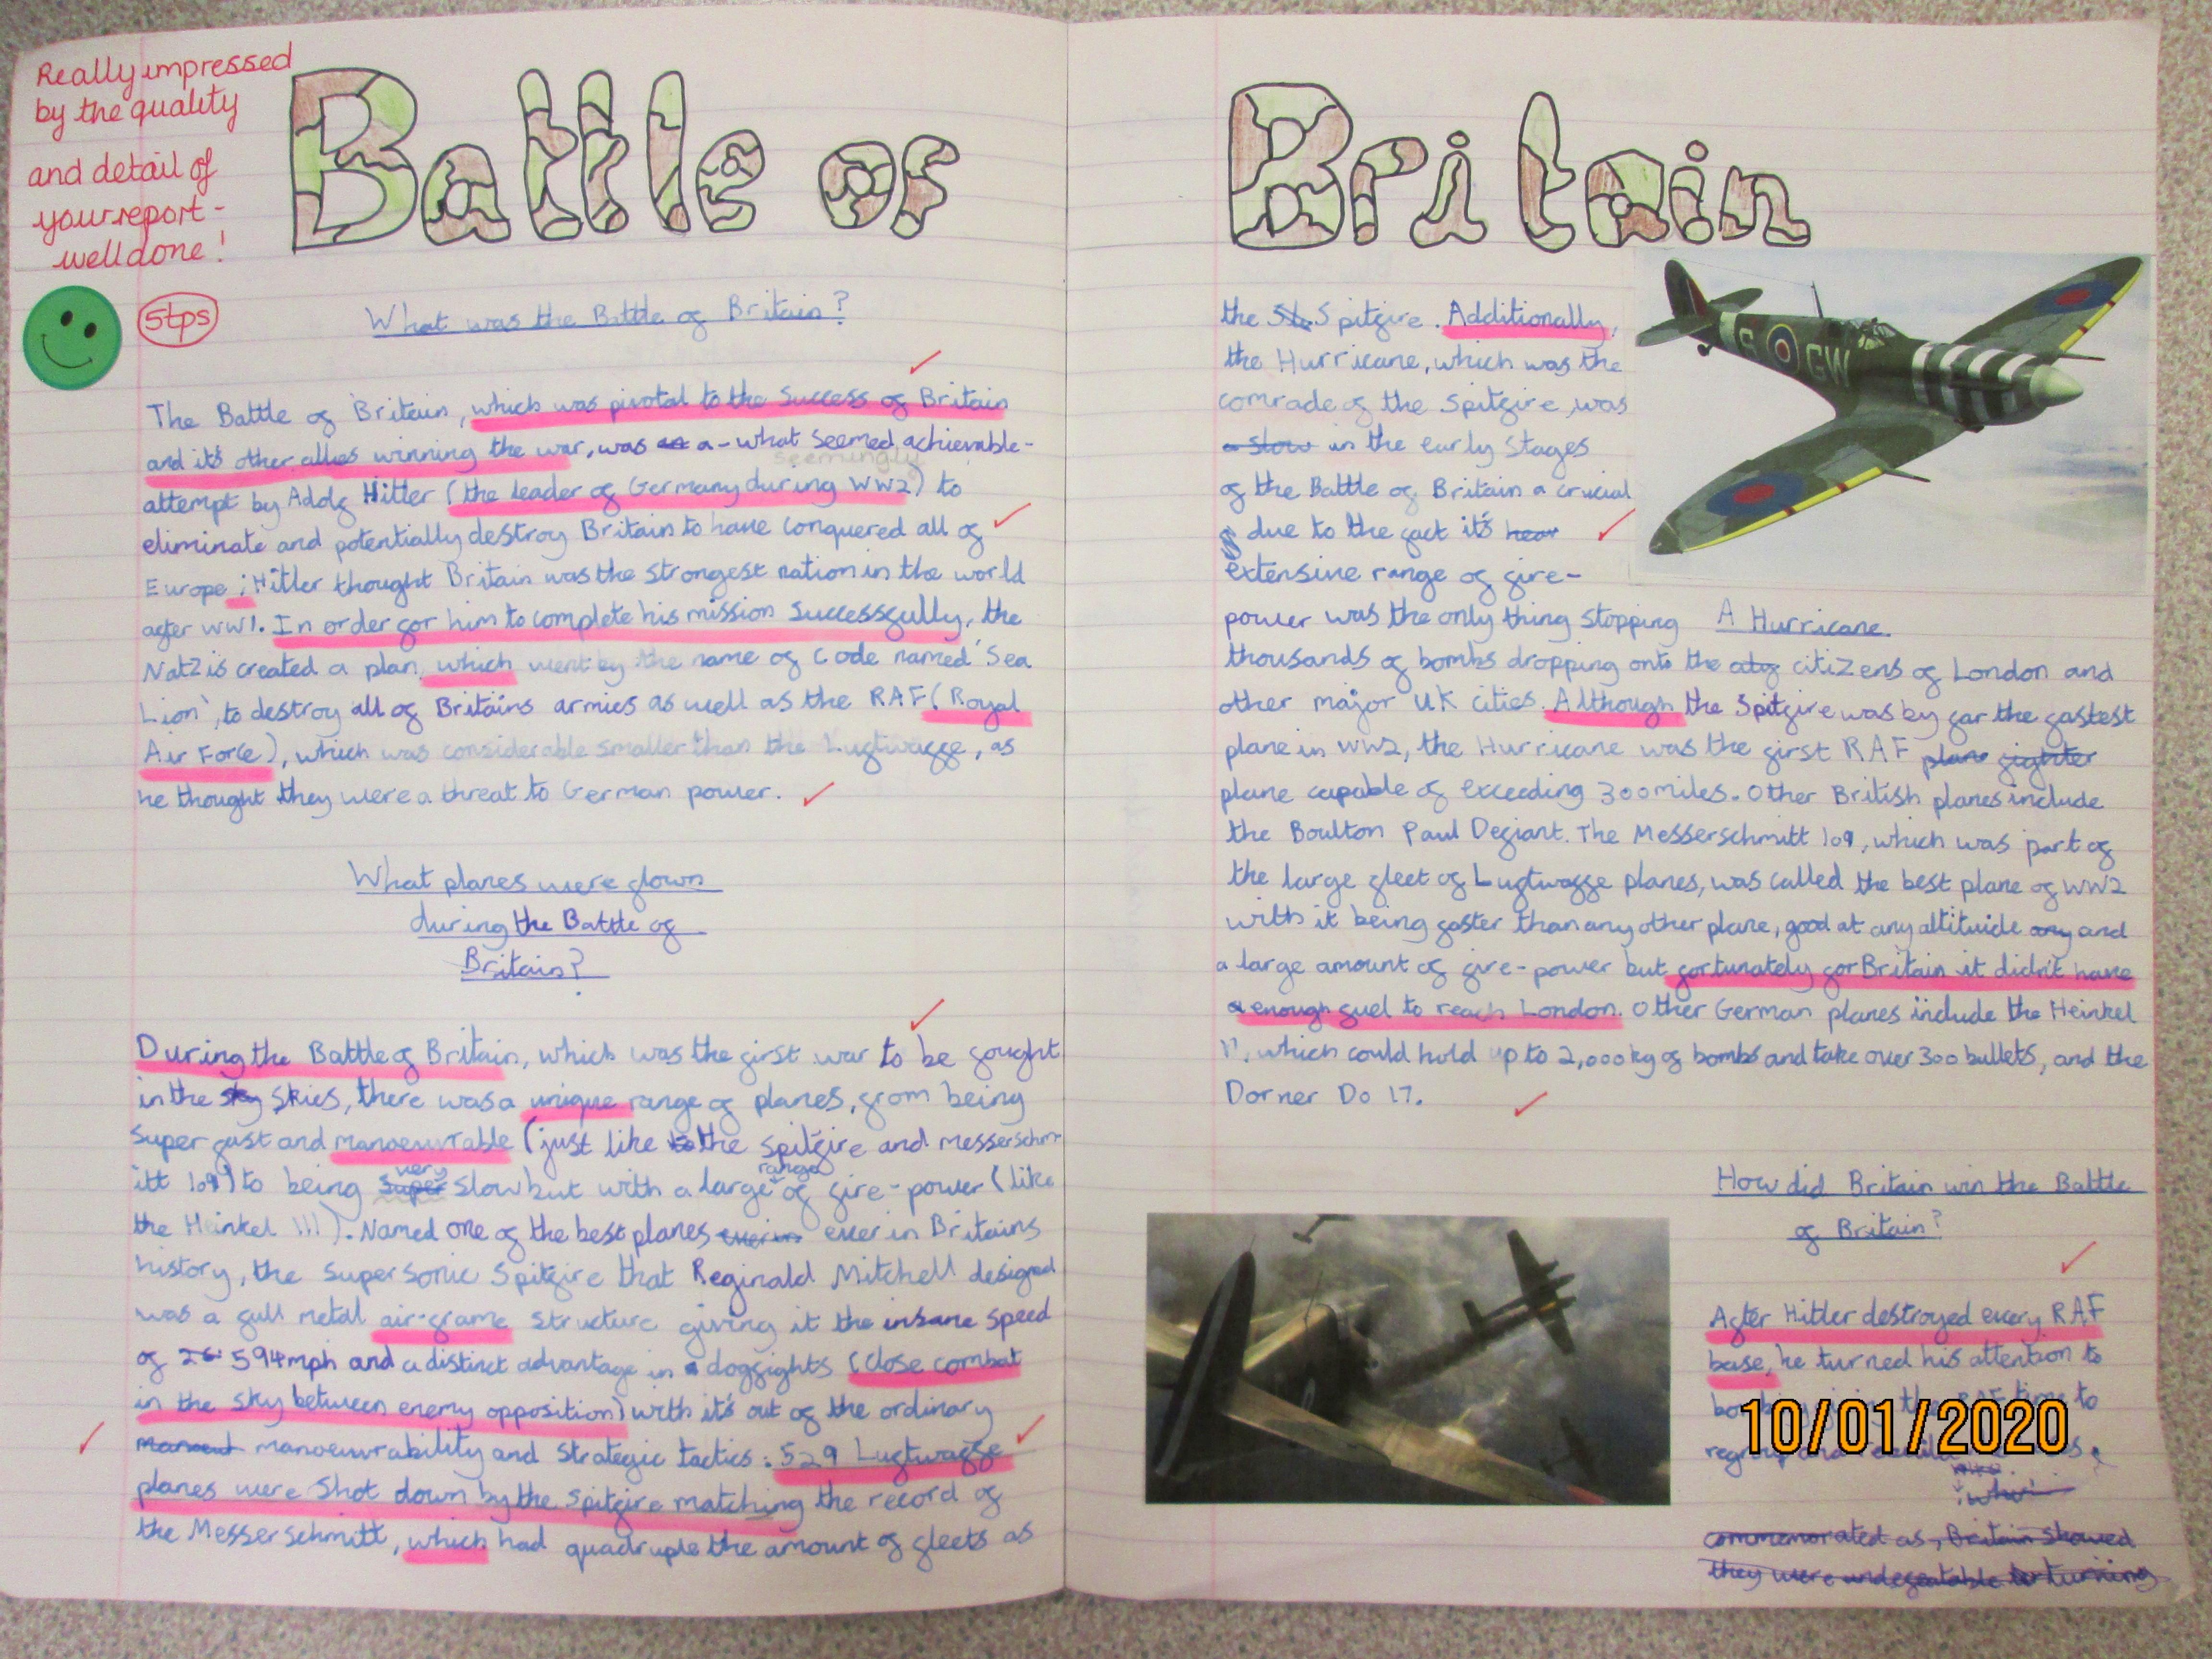 Really impressed
by the quality
and detail of
your report -
well done!
5tps
Battle of
What was the Battle of Britain?
The Battle of Britain, which was pivotal to the success of Britain
and it's other allies winning the war, was a - what seemed achievable -
seemingly
attempt by Adolf Hitler (the leader of Germany during WW2) to
eliminate and potentially destroy Britain to have conquered all of
Europe; Hitler thought Britain was the strongest nation in the world
after WW1. In order for him to complete his mission successfully, the
Natzis created a plan, which went by the name of code named 'Sea
Lion', to destroy all of Britains armies as well as the RAF (Royal
Air Force), which was considerable smaller than the Luftwaffe, as
he thought they were a threat to German power.
What planes were flown
during the Battle of
Britain?
During the Battle of Britain, which was the first war to be fought
in the sky skies, there was a unique range of planes, from being
super fast and manoeuvrable (just like the spitfire and messerschm-
itt 109) to being super very slow but with a large range of fire-power (like
the Heinkel 111). Named one of the best planes ever in Britains
history, the supersonic Spitfire that Reginald Mitchell designed
was a full metal air-frame structure giving it the insane speed
of 594mph and a distinct advantage in dogfights (close combat
in the sky between enemy opposition) with it's out of the ordinary
manoeuvrability and strategic tactics: 529 Luftwaffe
planes were shot down by the spitfire matching the record of
the Messerschmitt, which had quadruple the amount of fleets as
Britain
the Spitfire. Additionally,
the Hurricane, which was the
comrade of the spitfire, was
a slow in the early stages
of the Battle of Britain a crucial
due to the fact it's
extensive range of fire-
power was the only thing stopping
A Hurricane.
thousands of bombs dropping onto the citizens of London and
other major UK cities. Although the spitfire was by far the fastest
plane in WW2, the Hurricane was the first RAF plane fighter
plane capable of exceeding 300miles. Other British planes include
the Boulton Paul Defiant. The Messerschmitt 109, which was part of
the large fleet of Luftwaffe planes, was called the best plane of WW2
with it being faster than any other plane, good at any altitiude any and
a large amount of fire-power but fortunately for Britain it didn't have
enough fuel to reach London. Other German planes include the Heinkel
11, which could hold up to 2,000kg of bombs and take over 300 bullets, and the
Dorner Do 17.
How did Britain win the Battle
of Britain?
After Hitler destroyed every RAF
base, he turned his attention to
time to
10/01/2020
commemorated as, Britain showed
they were undefeatable turning
S GW